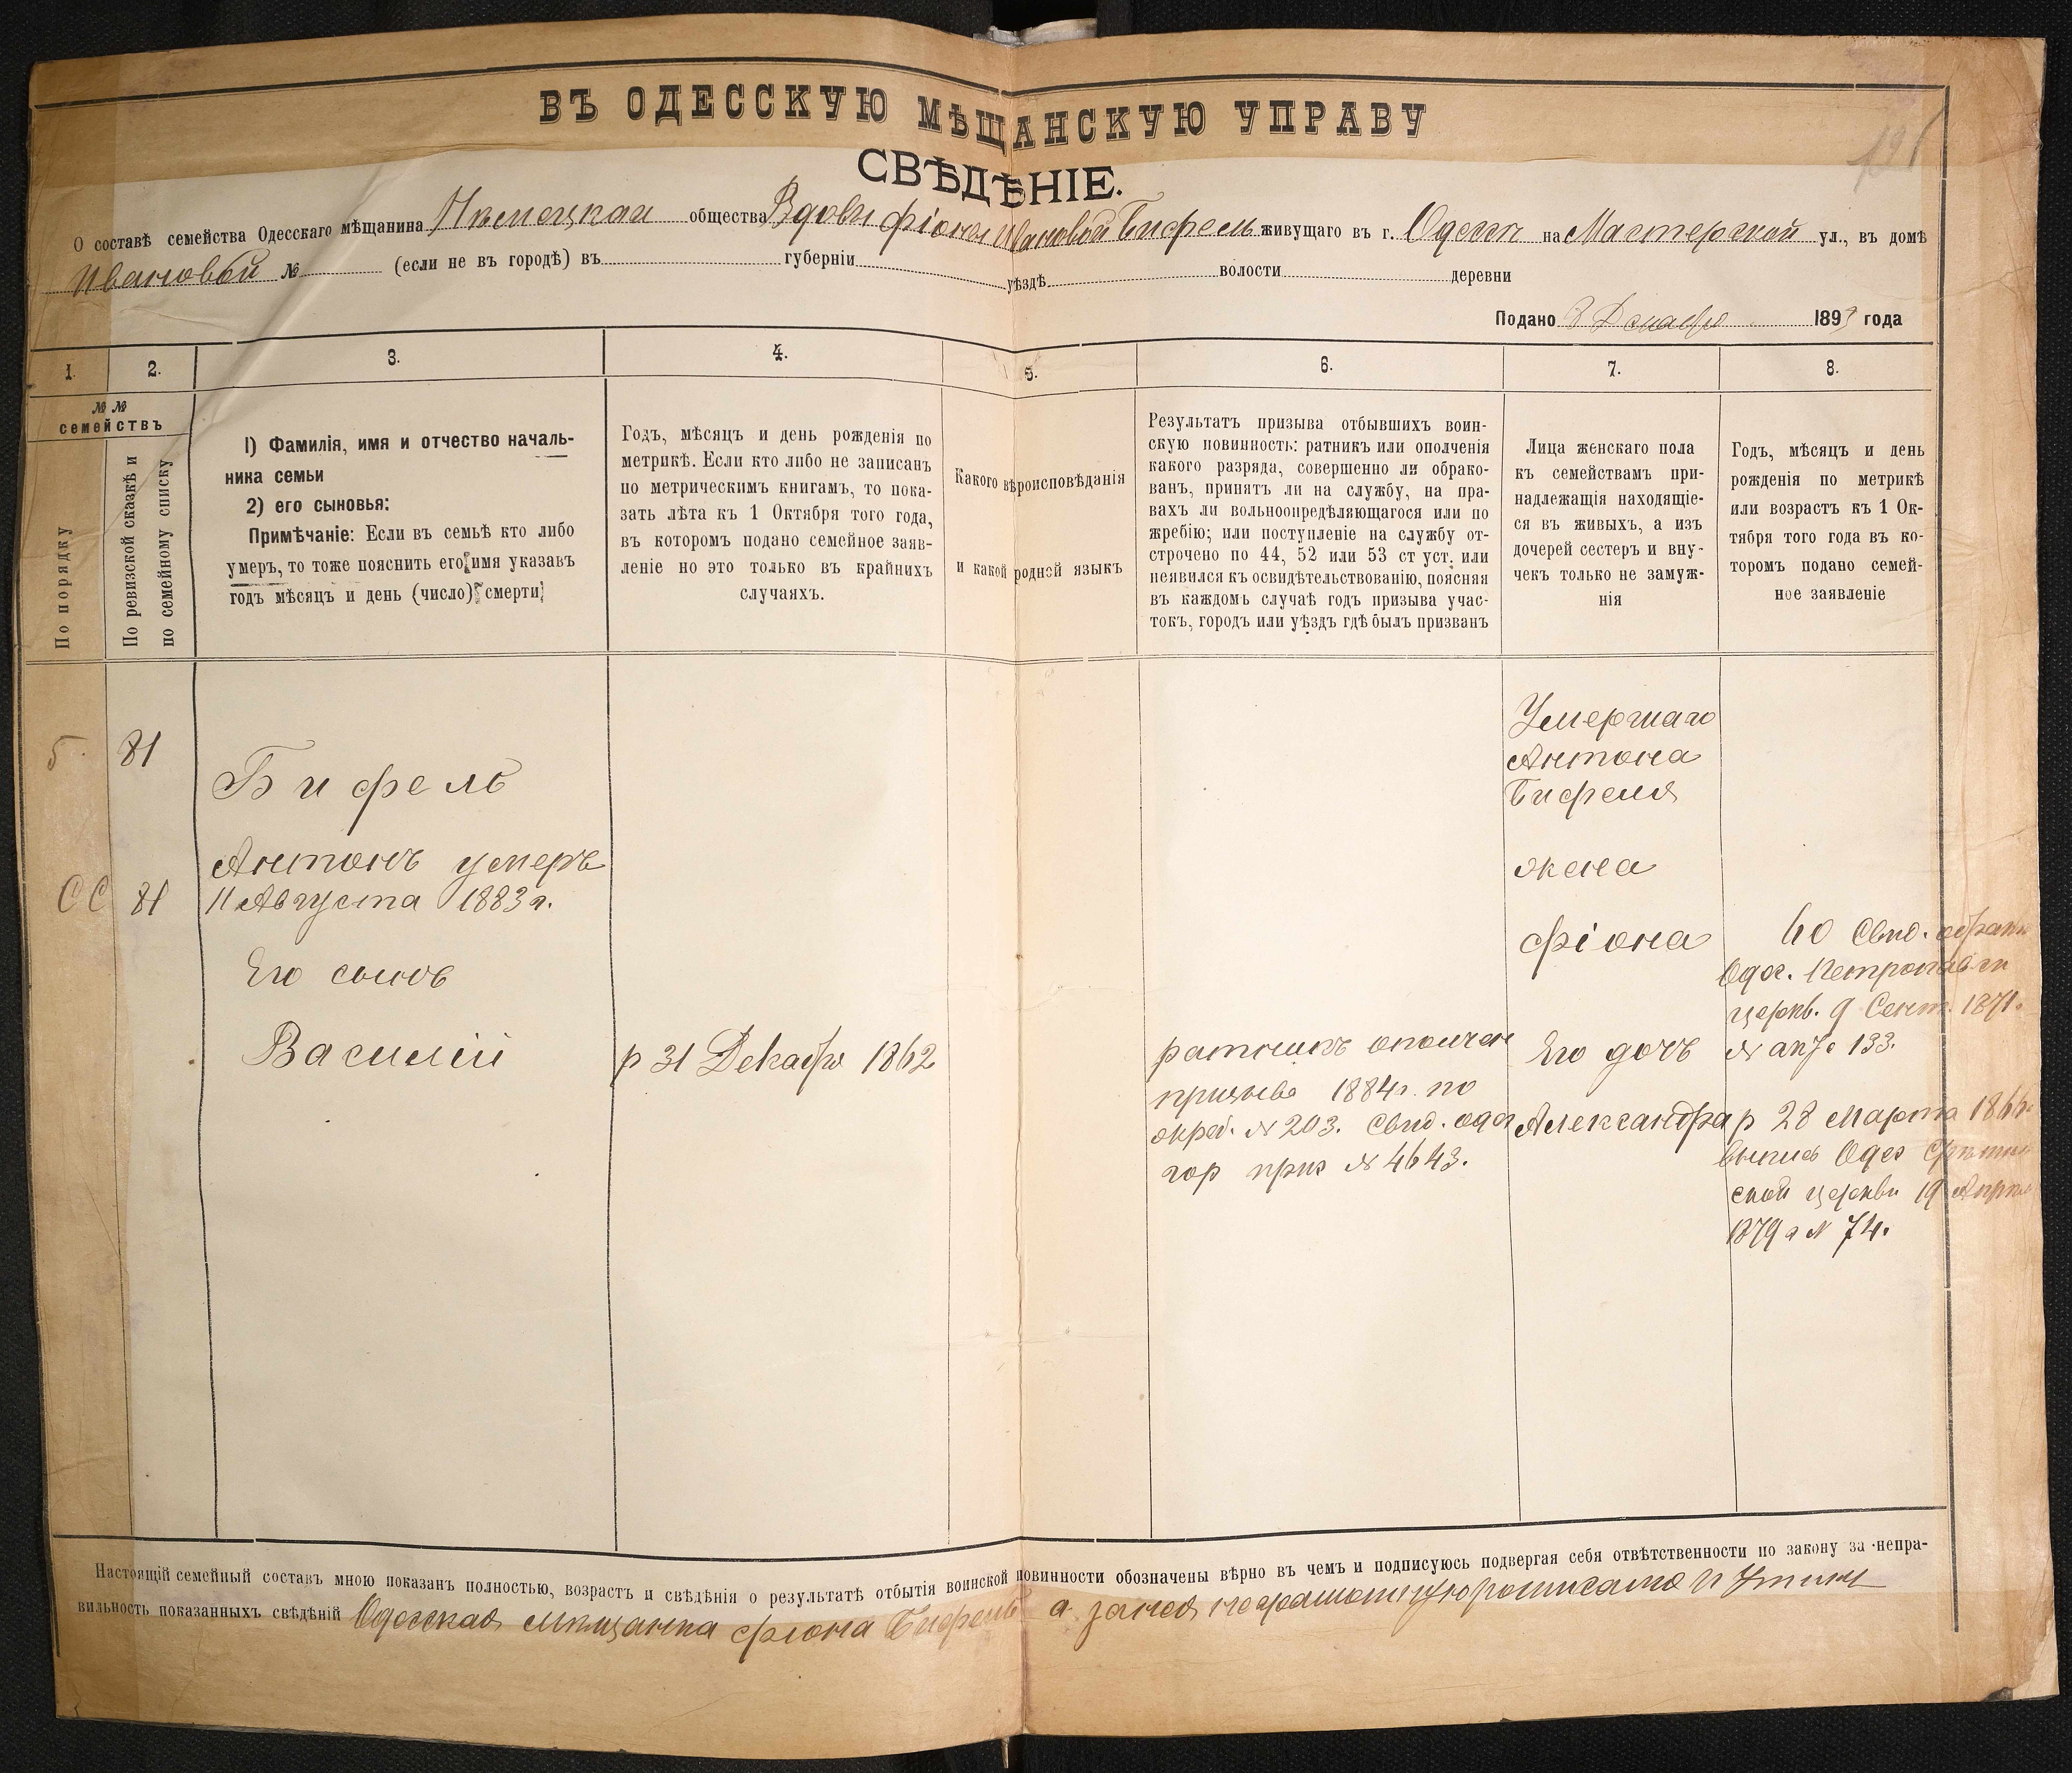 ВЪ ОДЕССКУЮ МѢЩАНСКУЮ УПРАВУ
СВѢДѢНІЕ.
О составѣ семейства Одесскаго мѣщанина Нѣмецкаго общества Вдовы Фіоны Ивановой Бифель живущаго въ г. Одессѣ на Мастерской ул., въ домѣ
Ивановой № (если не въ городѣ) въ губерніи уѣздѣ волости деревни
Подано 3 Декабря 1893 года
1. 2. 3. 4. 5. 6. 7. 8.
№ №
семействъ
По порядку
По ревизской сказкѣ и
по семейному списку
1) Фамилія, имя и отчество началь-
ника семьи
2) его сыновья:
Примѣчаніе: Если въ семьѣ кто либо
умеръ, то тоже пояснить его имя указавъ
годъ мѣсяцъ и день (число) смерти
Годъ, мѣсяцъ и день рожденія по
метрикѣ. Если кто либо не записанъ
по метрическимъ книгамъ, то пока-
зать лѣта къ 1 Октября того года,
въ которомъ подано семейное заяв-
леніе но это только въ крайнихъ
случаяхъ.
Какого вѣроисповѣданія
и какой родной языкъ
Результатъ призыва отбывшихъ воин-
скую повинность: ратникъ или ополченія
какого разряда, совершенно ли обрако-
ванъ, принятъ ли на службу, на пра-
вахъ ли вольноопредѣляющагося или по
жребію; или поступленіе на службу от-
строчено по 44, 52 или 53 ст уст. или
неявился къ освидѣтельствованію, поясняя
въ каждомъ случаѣ годъ призыва учас-
токъ, городъ или уѣздъ гдѣ былъ призванъ
Лица женскаго пола
къ семействамъ при-
надлежащія находящіе-
ся въ живыхъ, а изъ
дочерей сестеръ и вну-
чекъ только не замуж-
нія
Годъ, мѣсяцъ и день
рожденія по метрикѣ
или возрастъ къ 1 Ок-
тября того года въ ко-
торомъ подано семей-
ное заявленіе
5. 81
Бифель
Антонъ умеръ
СС 81 11 Августа 1883 г.
Его сынъ
Василій
р 31 Декабря 1862
ратникъ ополчен
призыва 1884 г. по
жреб. № 203. Свид. одес
гор приз № 4643.
Умершаго
Антона
Бифеля
жена
Фіона
Его дочь
Александра
60 Свид. о бракѣ
Одес. Петропав
церкв. 9 Сент. 1871.
№ 133.
р 28 Марта
выпись Одес Срѣтен
ской церкви 19 Апрѣл
1879 г № 74.
Настоящій семейный составъ мною показанъ полностью, возрастъ и свѣдѣнія о результатѣ отбытія воинской повинности обозначены вѣрно въ чемъ и подписуюсь подвергая себя отвѣтственности по закону за непра-
вильность показанныхъ свѣдѣній Одесская мѣщанка Фіона Бифель а за нея неграмотную